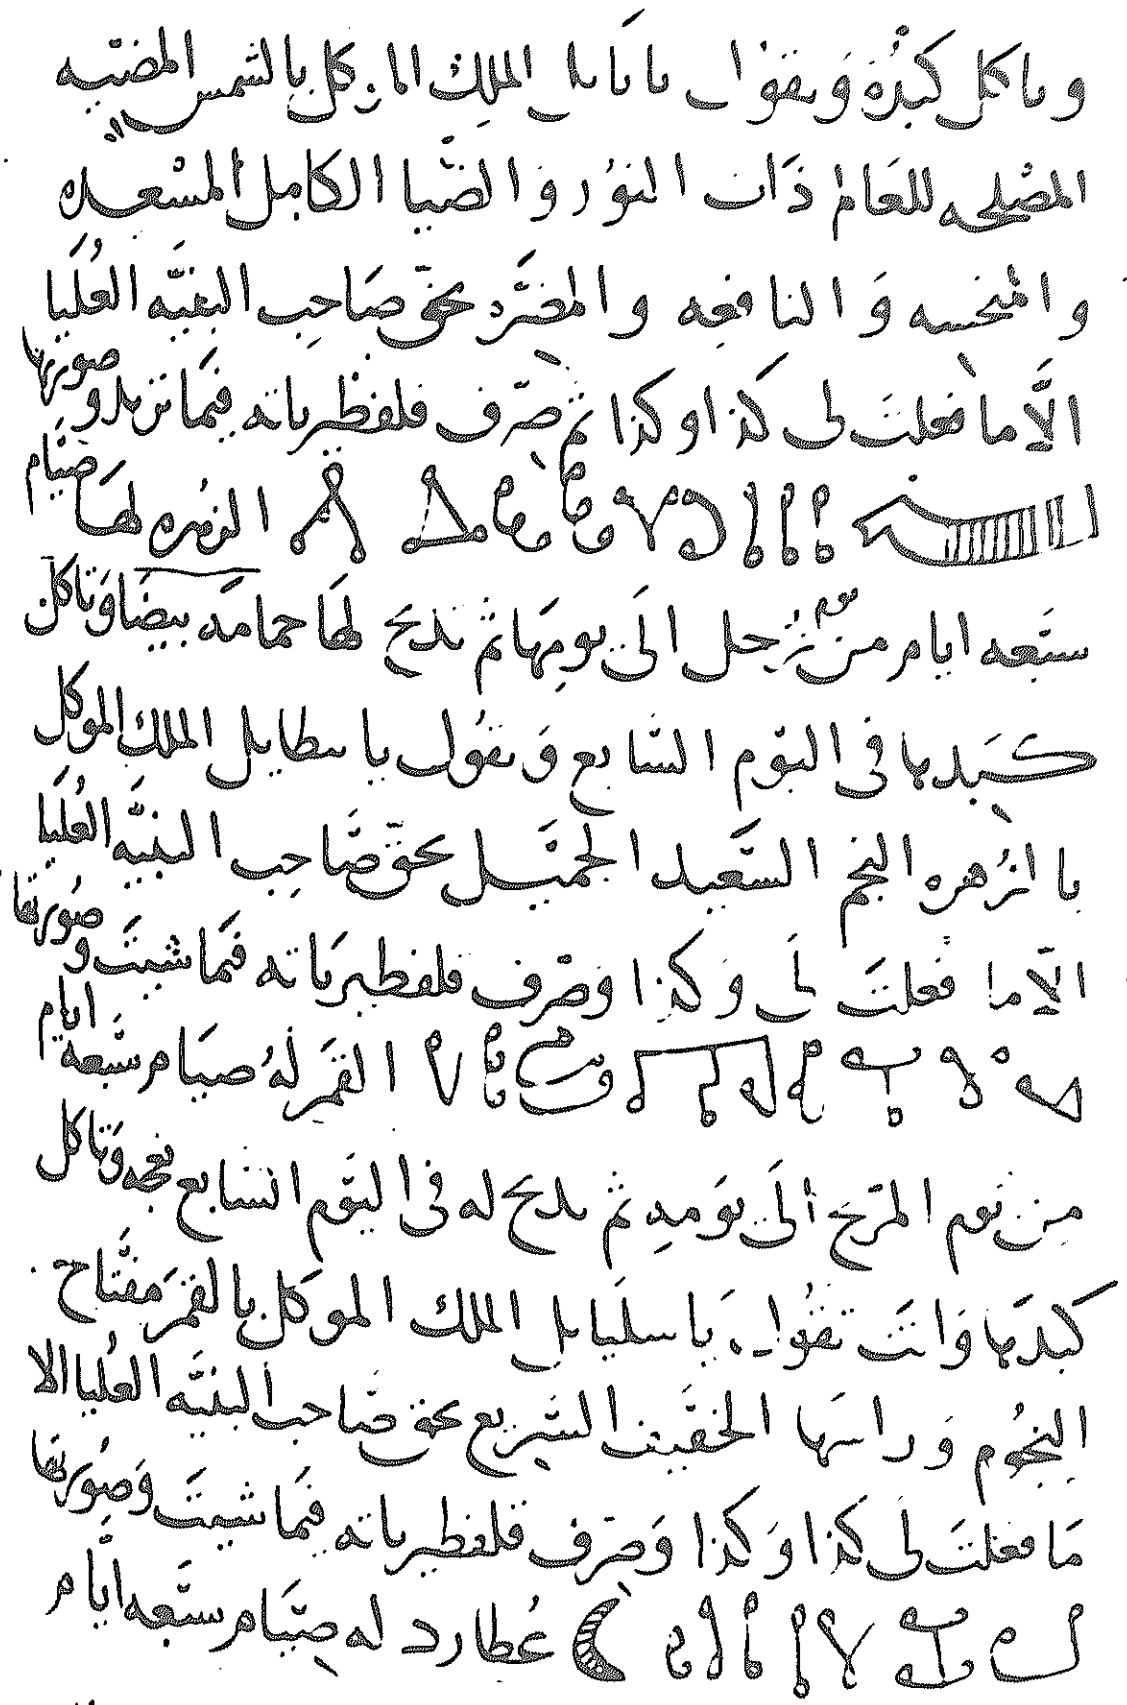 وياكل كبده وتقول يا بابل الملك الموكل بالشمس المضيه
المصلحه للعالم ذات النور والضيا الكامل المسعده
والمنحسه والنافعه والمضره بحق صاحب البنيه العُليا
الَّا ما فعلت لى كذا وكذا ثم صرّف فلفطيرياته فيما تريد وصورتها
الزهره لها صيام
سبعه ايام من يوم زُحل الَى يومها ثم تذبح لها حمامه بيضا وتاكل
كبدها فى اليوم السّابع وتقول يا بيطايل الملك الموكل
بالزُهره النجم السَّعيد الجميل بحق صَاحِب البنيّه العُليَا
الّا ما فعلتَ لى وكذا وصرّف فلفطيرياته فيما شيت وصُورتها
القمر لهُ صيام سبعه ايام
من يوم المريخ الَى يومه ثم تذبح له فى اليوم السابع نعجه وتاكل
كبدَها وانت تقول يا سلَيايل الملك الموكل بالقمر مفتاح
النجُوم وراسَها الخفيف السَّريع بحق صَاحب البنيَّه العُليا الا
مَا فعلتَ لى كذا وكذا وصرّف فلفطيرياته فيما شيتَ وصُورتها
عُطارد له صِيَام سبعه ايَّام